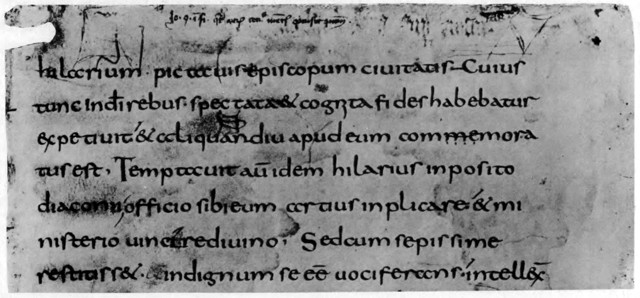 hilarium pictavis episcopum civitatis. Cuius
tunc indi rebus. spectata & cognita fides habebatur
expetivit. & aliquandiu apud eum commemora
tus est. Temptavit aū idem hilarius inposito
diaconii officio sibi eum artius inplicare. & mi
nisterio vincire divino. Sed cum sepissime
restitiss&. indignum se eē vociferans. intellex̄